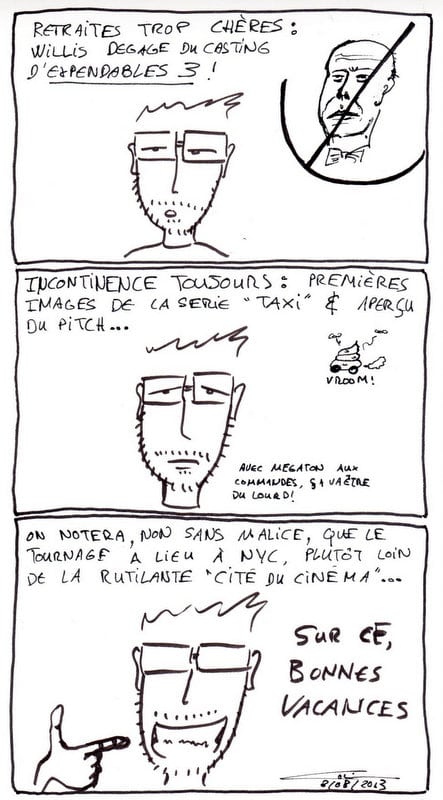 RETRAITES TROP CHÈRES :
WILLIS DEGAGE DU CASTING
D'EXPENDABLES 3 !
INCONTINENCE TOUJOURS : PREMIÈRES
IMAGES DE LA SERIE "TAXI" & APERÇU
DU PITCH...
VROOM !
AVEC MEGATON AUX
COMMANDES, ÇA VA ÊTRE
DU LOURD !
ON NOTERA, NON SANS MALICE, QUE LE
TOURNAGE A LIEU À NYC, PLUTÔT LOIN
DE LA RUTILANTE "CITÉ DU CINÉMA"...
SUR CE,
BONNES
VACANCES
8/08/2013